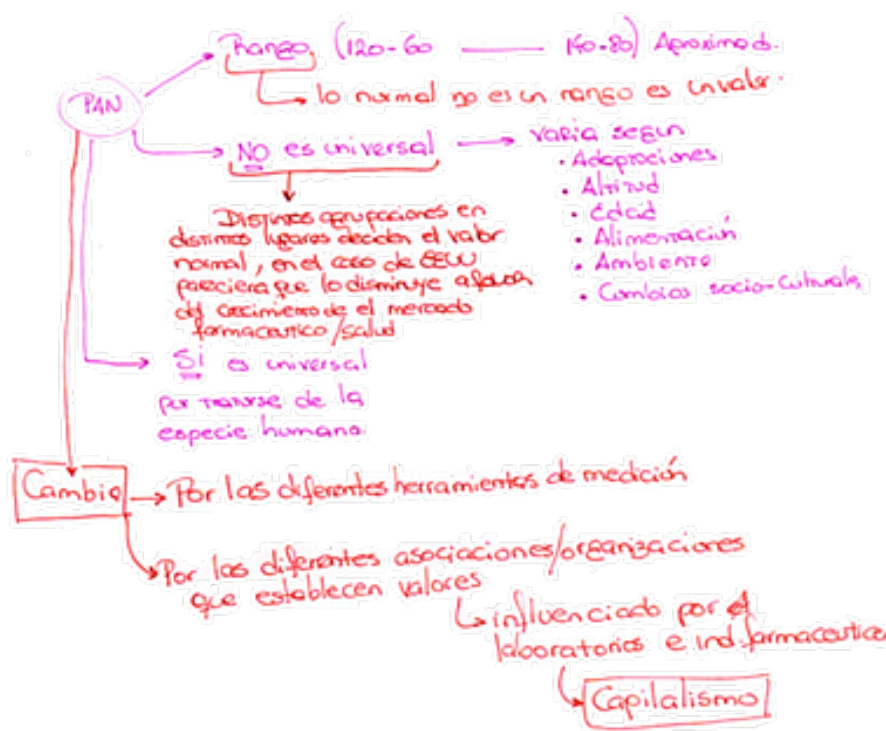 PAN
Rango (120-60 — 140-80) Aproximad.
lo normal no es un rango es un valor.
NO es universal
varia segun
• Adaptaciones
• Altitud
• Edad
• Alimentación
• Ambiente
• Cambios socio-culturals
Distintas agrupaciones en
distintos lugares deciden el valor
normal, en el caso de EEUU
pareciera que lo disminuye a favor
del crecimiento de el mercado
farmaceutico/salud
SI es universal
por tratarse de la
especie humana.
Cambio
Por las diferentes herramientas de medición
Por las diferentes asociaciones/organizaciones
que establecen valores
influenciado por
laboratorios e ind. farmaceutica
Capitalismo